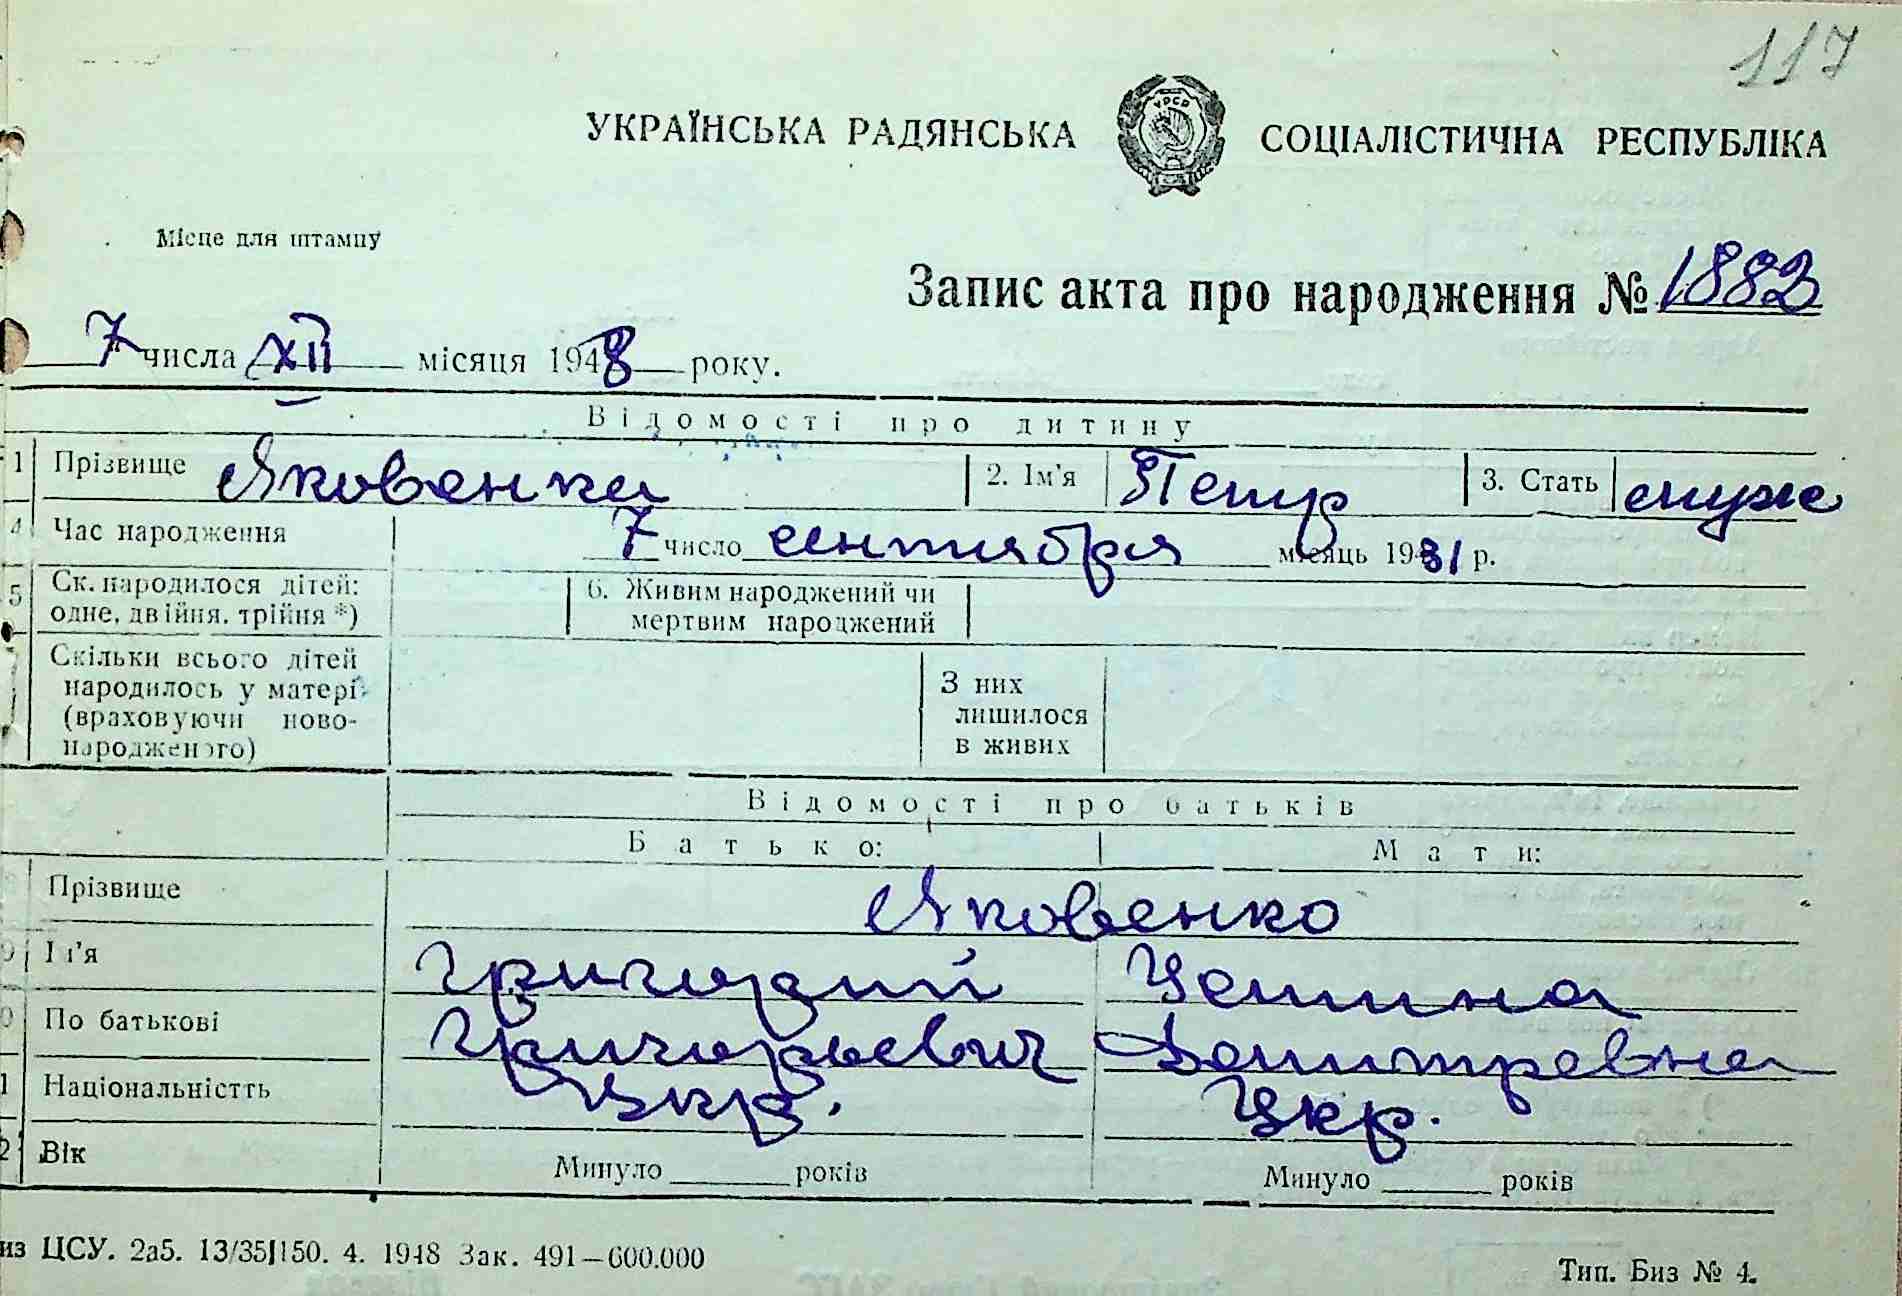 117
УКРАЇНСЬКА РАДЯНСЬКА СОЦІАЛІСТИЧНА РЕСПУБЛІКА
УРСР
Місце для штампу
Запис акта про народження № 1882
7 числа XII місяця 1948 року.
Відомості про дитину
1 Прізвище Яковенко 2. Ім'я Петр 3. Стать муж
4 Час народження 7 число сентября місяць 1931 р.
5 Ск. народилося дітей: одне, двійня, трійня *) 6. Живим народжений чи мертвим народжений
7 Скільки всього дітей народилось у матері (враховуючи новонародженого) З них лишилося в живих
Відомості про батьків
Батько: Мати:
Прізвище Яковенко
9 Ім'я Григорий
По батькові Григорьевич Дмитревна
1 Національністть Укр. Укр.
2 Вік Минуло ______ років Минуло ______ років
из ЦСУ. 2а5. 13/35 150. 4. 1948 Зак. 491—600.000 Тип. Биз № 4.